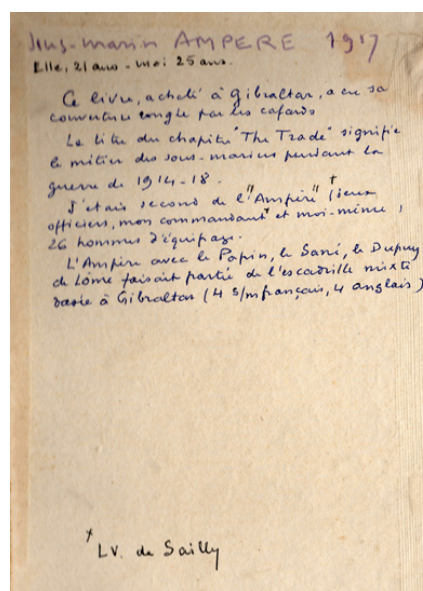 Sous-marin AMPERE 1917
Elle, 21 ans - moi 25 ans.
Ce livre, acheté à Gibraltar, a eu sa
couverture rongée par les cafards
Le titre du chapitre "The Trade" signifie
le métier des sous-marins pendant la
guerre de 1914-18.
J'étais second de l'"Ampère" (deux
officiers, mon commandant* et moi-même,
26 hommes d'équipage.
L'Ampère avec le Papin, le Sané, le Dupuy
de Lôme faisait partie de l'escadrille mixte
basée à Gibraltar (4 s/m français, 4 anglais)
* LV. de Sailly